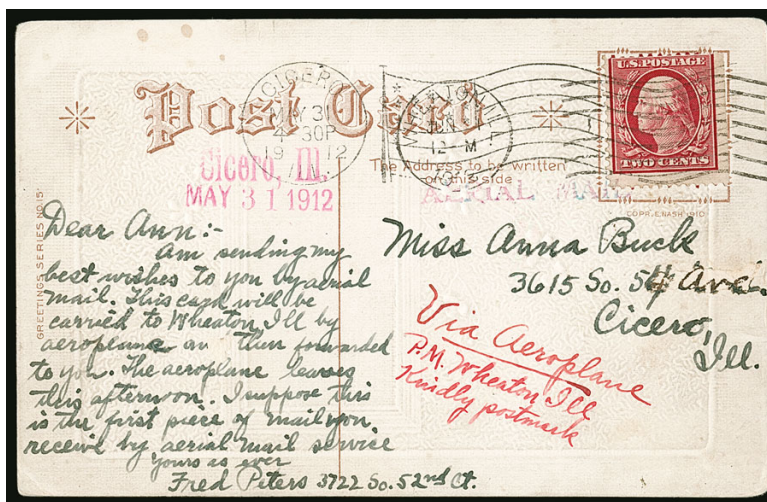 Post Card
CICERO
MAY 30
4 30P
19 12
ILL.
WHEATON, ILL.
JUN 1
12 M
1912
U.S. POSTAGE
TWO CENTS
The Address to be written
on this side
Cicero, Ill.
MAY 31 1912
AERIAL MAIL
COPR. E. NASH 1910
GREETINGS SERIES NO. 15
Dear Ann:-
Am sending my
best wishes to you by aerial
mail. This card will be
carried to Wheaton, Ill by
aeroplane an then forwarded
to you. The aeroplane leaves
this afternoon. I suppose this
is the first piece of mail you
receive by aerial mail service
yours as ever
Fred Peters 3722 So. 52nd Ct.
Miss Anna Buck
3615 So. 54 Ave.
Cicero,
Ill.
Via Aeroplane
P.M. Wheaton Ill
Kindly postmark